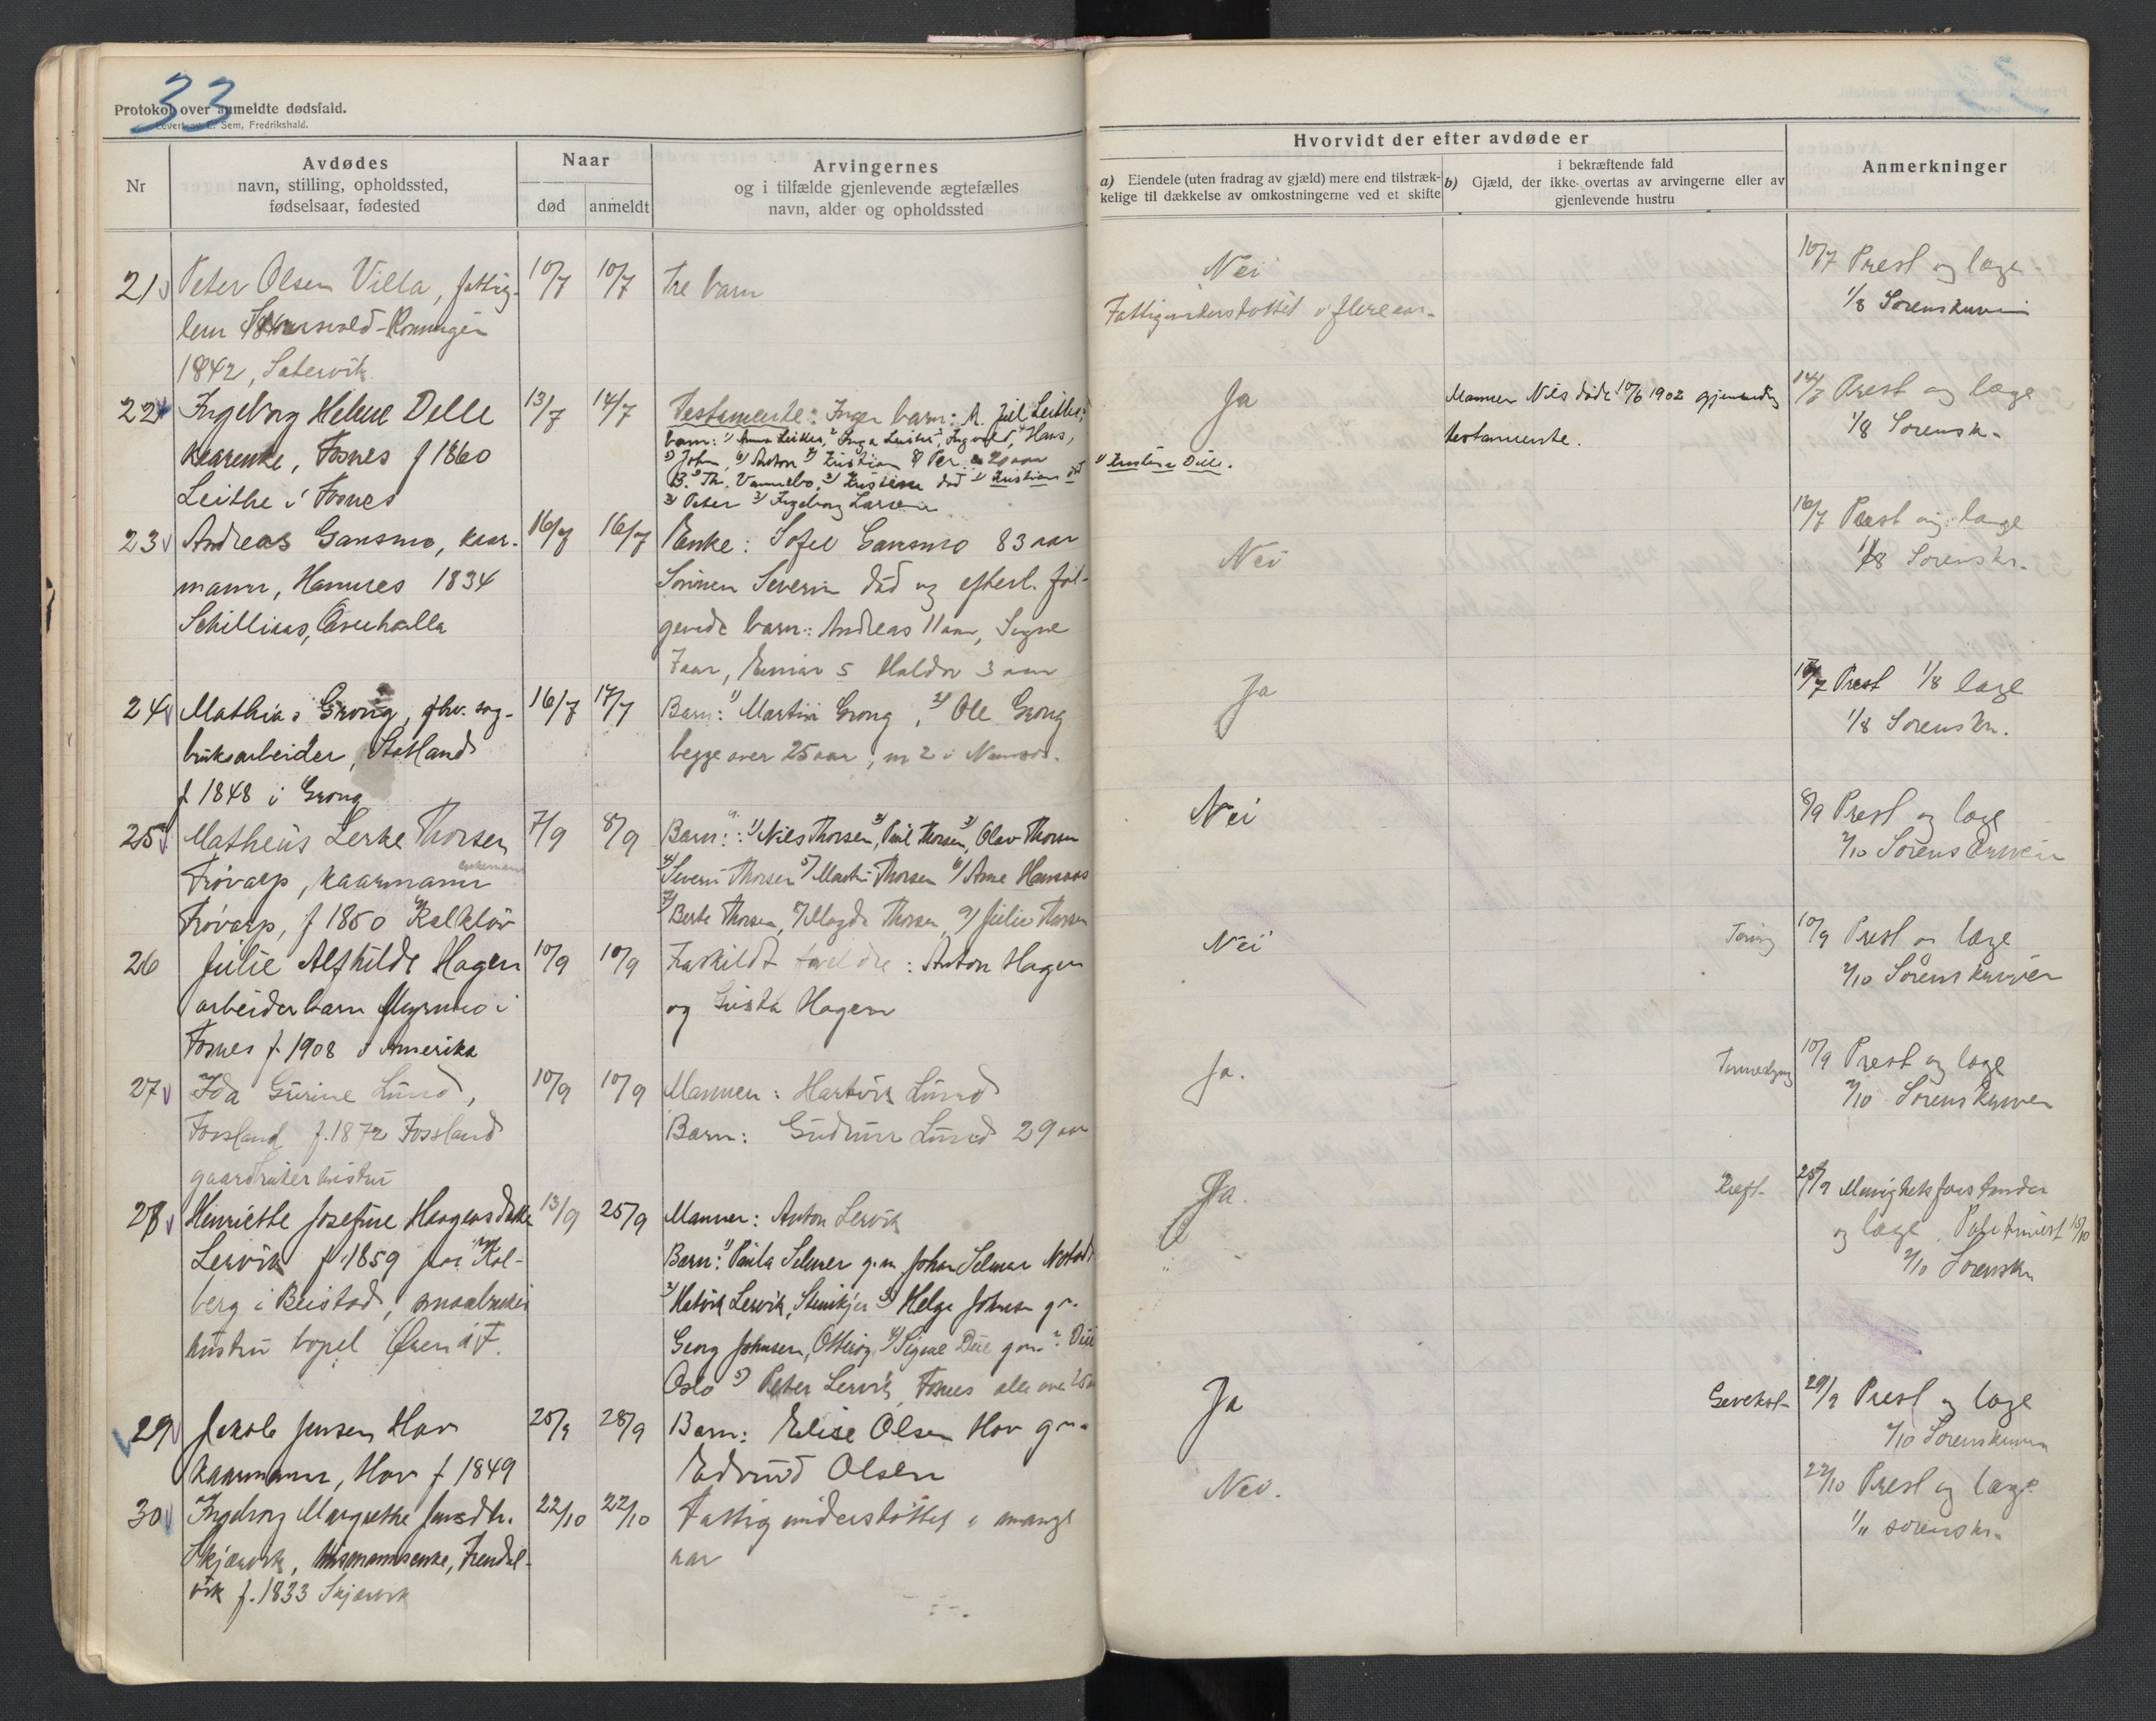 33
Protokol over anmeldte dødsfald.
Sem, Fredrikshald.
Nr
Avdødes
navn, stilling, opholdssted,
fødselsaar, fødested
Naar
død
anmeldt
Arvingernes
og i tilfælde gjenlevende ægtefælles
navn, alder og opholdssted
Hvorvidt der efter avdøde er
a) Eiendele (uten fradrag av gjæld) mere end tilstræk-
kelige til dækkelse av omkostningerne ved et skifte
i bekræftende fald
b) Gjæld, der ikke overtas av arvingerne eller av
gjenlevende hustru
Anmerkninger
21 Peter Olsen Villa, fattig- 10/7 10/7 Tre barn Nei 10/7 Prest og læge
lem Fattigunderstøttet i flere aar. 1/8 Sorenskriver
1842, Sætervik
22 Ingeborg Heline Delle 13/7 14/7 Testamente: Ingen barn: A. Leithes Ja Mannen Nils døde 10/6 1902 14/7 Prest og læge
kaarenke, Fosnes f 1860 barn: 1) Anna Leithes, Ingvald, Hans, testamente. 1/8 Sorensk.
5) John, 6) Anton 7) Kristian 8) Per 20 aar 1) Kristine Dille.
Leithe i Fosnes B. Th. Vannebo, Kristian død
2) Peter 3) Ingeborg Larsen
23 Andreas Gansmo, kaar- 16/7 16/7 Enke: Sofie Gansmo 83 aar Nei 16/7 Prest og læge
mann, Hamnes 1834 Sønnen Severin død og efterl. føl- 1/8 Sorenskr.
Schilliaas, Overhalla gende barn: Andreas 11 aar, Signe
7 aar, Einar 5 Haldor 3 aar
24 Mathias Grong, fhv. sag- 16/7 17/7 Barn: 1) Martin Grong, 2) Ole Grong Ja 17/7 Prest 1/8 læge
bruksarbeider, Statland begge over 25 aar, nr 2 i Namsos. 1/8 Sorenskr.
f 1848 i Grong
25 Matheus Lerke Thorsen 7/9 8/9 Barn: 1) Nils Thorsen, 2) Paul Thorsen, 3) Olav Thorsen Nei 8/9 Prest og læge
enkemann
Frövarp, kaarmann 4) Severin Thorsen 5) Martin Thorsen 6) Anne 2/10 Sorenskriver
Frövarp, f 1850 7) Berte Thorsen, 8) Magda Thorsen, 9) Julie Thorsen
26 Julie Alfhilde Hagen 10/9 10/9 Fraskildt foreldre: Anton Hagen Nei 10/9 Prest og læge
arbeiderbarn Myrmo i og Gusta Hagen 2/10 Sorenskriver
Fosnes f. 1908 i Amerika
27 Ida Gurine Lund, 10/9 10/9 Mannen: Hartvik Lund Ja. 10/9 Prest og læge
Fossland f. 1872 Fossland Barn: Gudrun Lund 29 aar 2/10 Sorenskriver
gaardbruker hustru
28 Henriette Josefine Haagensdatter 13/9 25/9 Mannen: Anton Lervik Ja. Kreft. 25/9 Menighetsforstander
Lervik f. 1859 paa Kol- Barn: 1) Paula Selmer g.m. Johan Selmer og læge 15/10
berg i Beistad, smaabruker 2) Hatvik Lervik, Steinkjer 3) Helga Johnsen gm. 2/10 Sorenskr
hustru bopel Georg Johnsen, Otterøy, 4) Signe Due gm. Due
Oslo 5) Peter Lervik, Fosnes alle over 25 aar
29 Jakob Jensen Hov 25/9 28/9 Barn: Elise Olsen Hov gm. Ja 29/9 Prest og læge
kaarmann, Hov f 1849 Edvind Olsen 2/10 Sorenskriver
30 Ingeborg Margrethe Jensdtr. 22/10 22/10 Fattigunderstøttet i mange Nei. 22/10 Prest og læge
Skjærvik, husmannsenke, aar 1/11 sorenskr.
vik f. 1833 Skjærvik